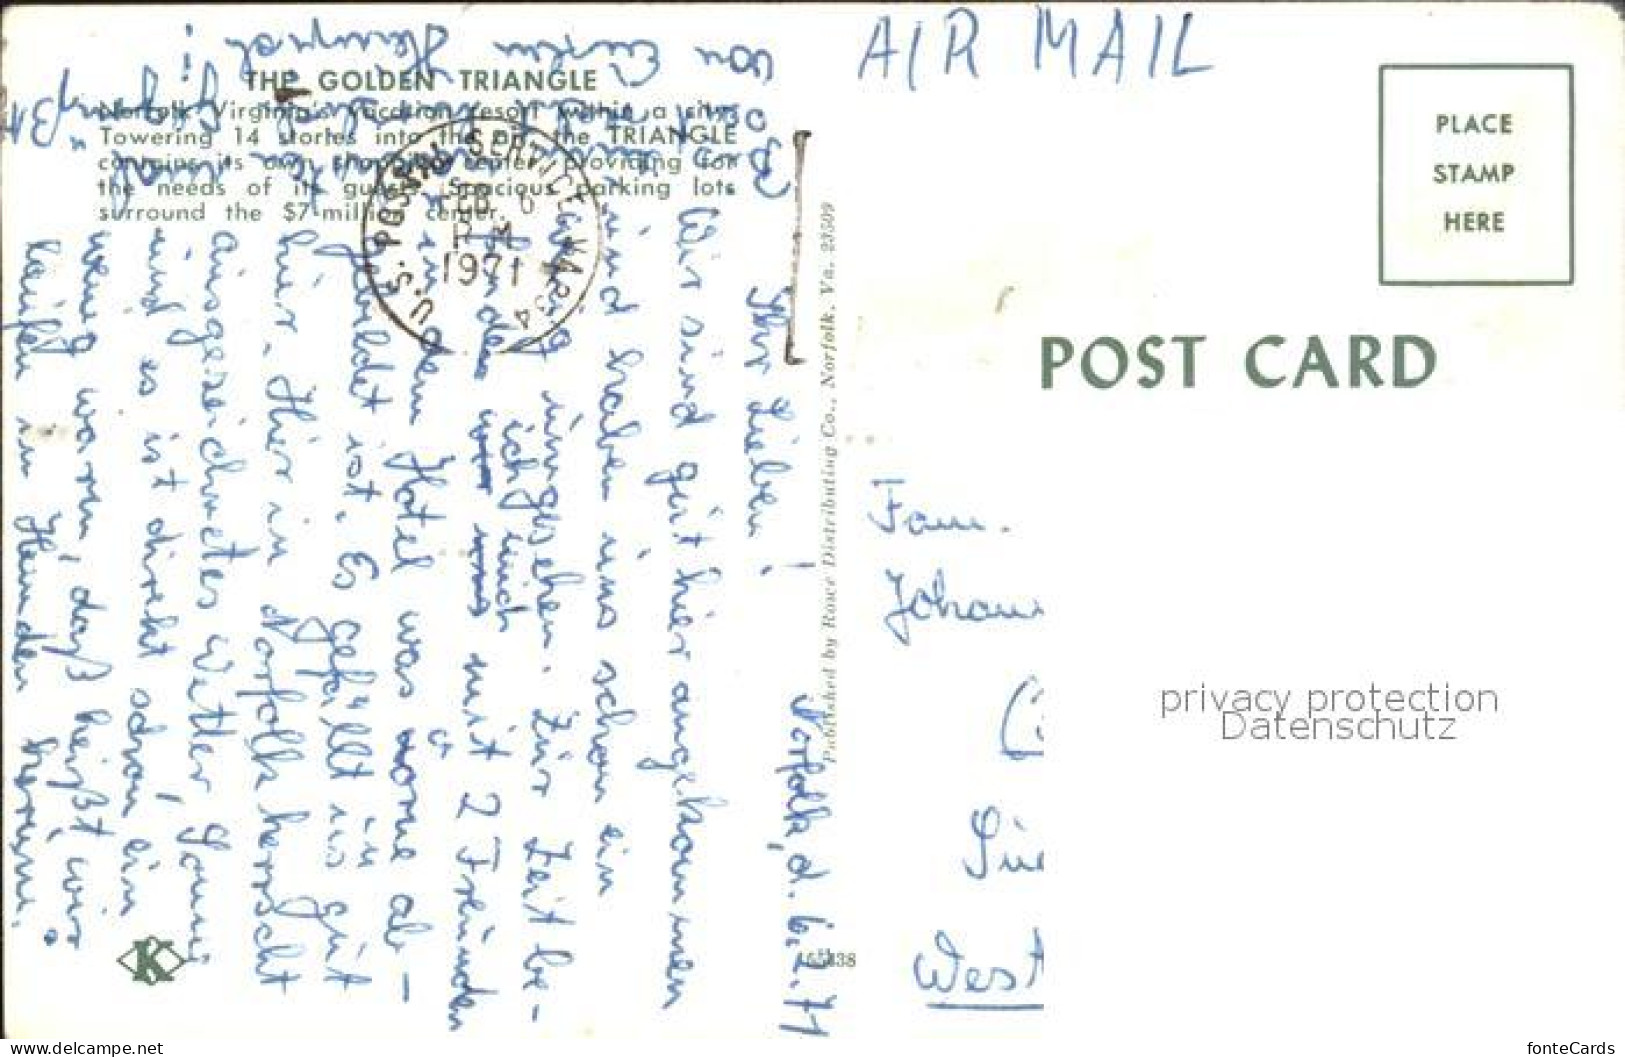 THE GOLDEN TRIANGLE
Norfolk Virginia's vacation resort within a city.
Towering 14 stories into the air, the TRIANGLE
contains its own shopping center, providing for
the needs of its guests. Spacious parking lots
surround the $7-million center.
Norfolk, d. 6.2.71
Ihr Lieben!
Wir sind gut hier angekommen
und haben uns schon ein
wenig umgesehen. Zur Zeit be-
finde ich mich mit 2 Freunden
in dem Hotel was vorne ab-
gebildet ist. Es gefällt uns gut
hier. Hier in Norfolk herrscht
ausgezeichnetes Wetter
und es ist direkt schon ein
wenig warm, daß heißt, wir
laufen in Hemden herum.
von Eurem
U.S. POSTAL SERVICE, VA. 234
FEB 6
PM
1971
Published by Rowe Distributing Co., Norfolk, Va. 23509
K
AIR MAIL
PLACE
STAMP
HERE
POST CARD
Fam.
Johann
West
privacy protection
Datenschutz
https://www.delcampe.net
fonteCards